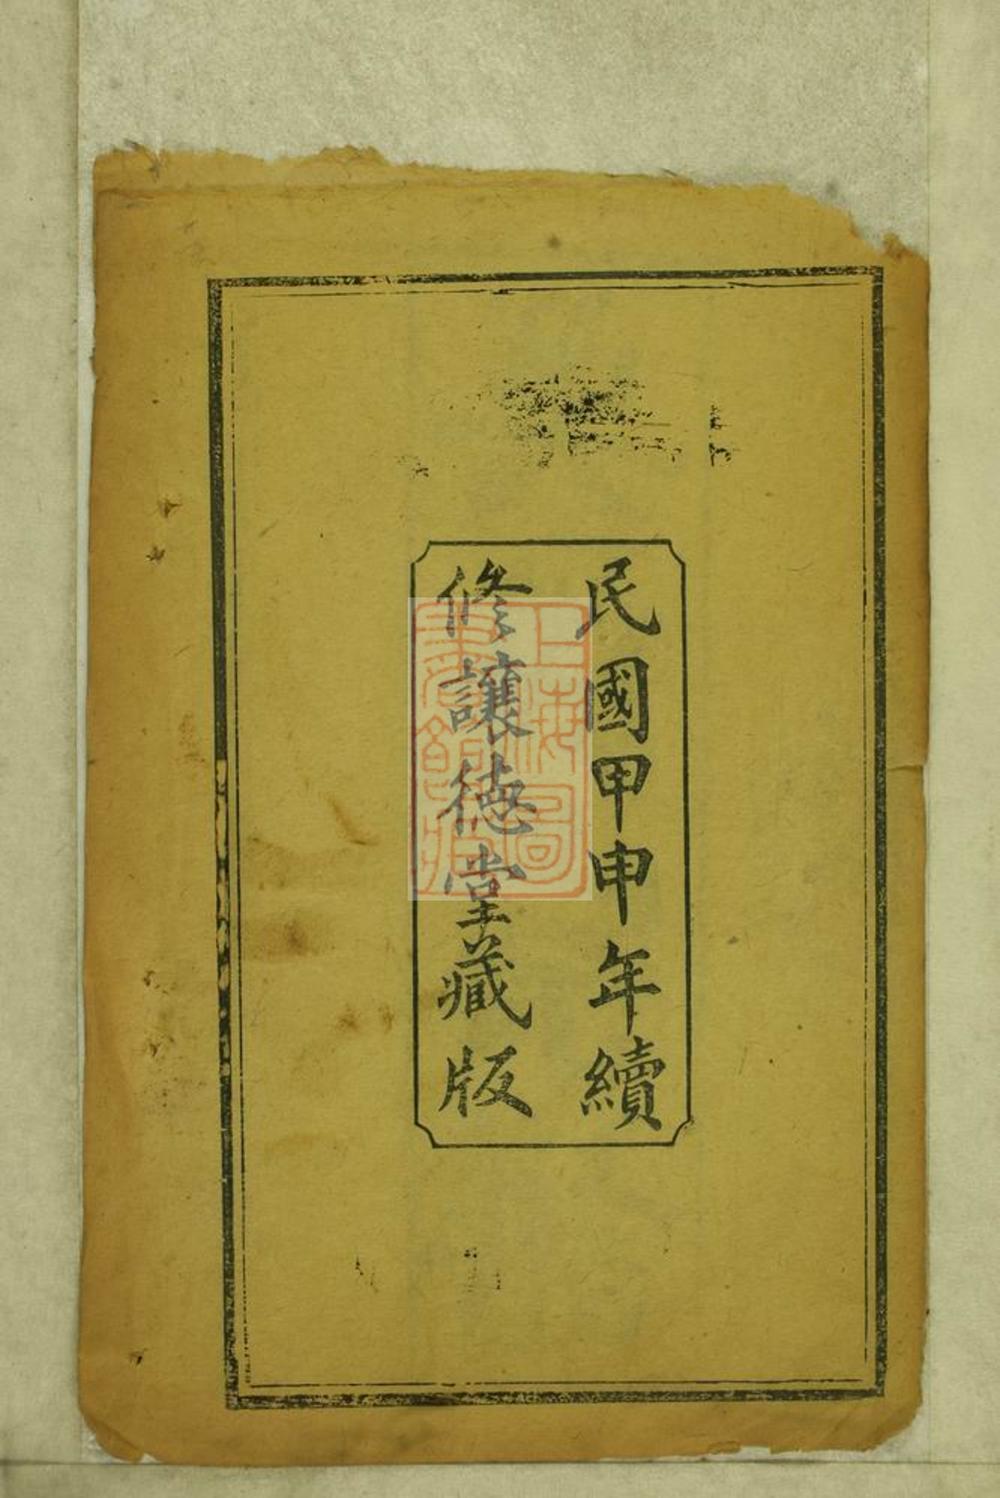 民國甲申年續
修讓德堂藏版
上海圖
書館藏